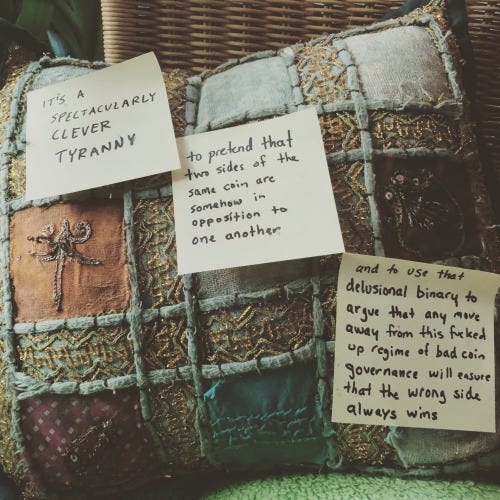 IT'S A
SPECTACULARLY
CLEVER
TYRANNY
to pretend that
two sides of the
same coin are
somehow in
opposition to
one another
and to use that
delusional binary to
argue that any move
away from this fucked
up regime of bad coin
governance will ensure
that the wrong side
always wins